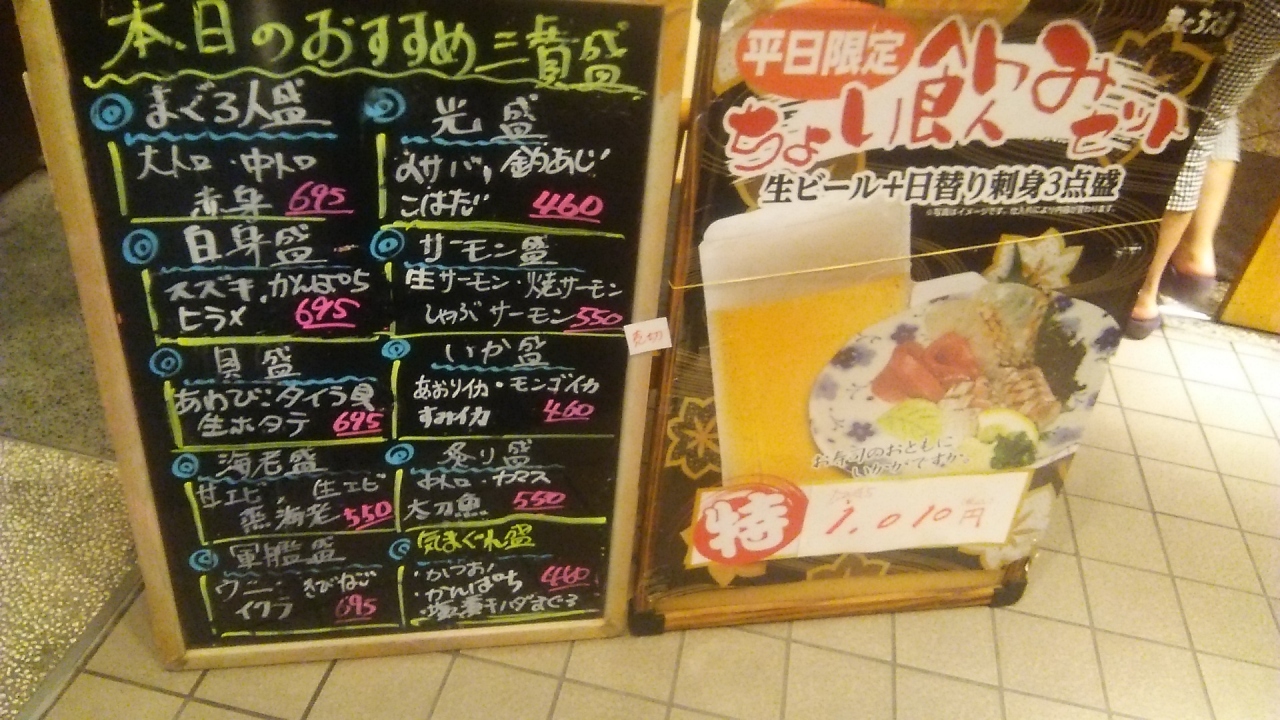 本日のおすすめ三貫盛
まぐろ人盛
大トロ・中トロ
赤身 695
光盛
〆サバ, 釣あじ
こはだ 460
白身盛
スズキ,かんぱち
ヒラメ 695
サーモン盛
生サーモン・焼サーモン
しゃぶサーモン 550
貝盛
あわび:タイラ貝
生ホタテ 695
いか盛
あおりイカ・モンゴイカ
すみイカ 460
海老盛
甘エビ, 生エビ
蒸海老 550
炙り盛
カマス
太刀魚 550
軍艦盛
ウニ・きびなご
イクラ 695
気まぐれ盛
・かつお 460
・かんぱち
キハダまぐろ
売切
平日限定
ちょい飲みセット
生ビール+日替り刺身3点盛
※写真はイメージです。仕入れにより内容が変わります。
お寿司のおともに
いかがですか。
特 1,010円